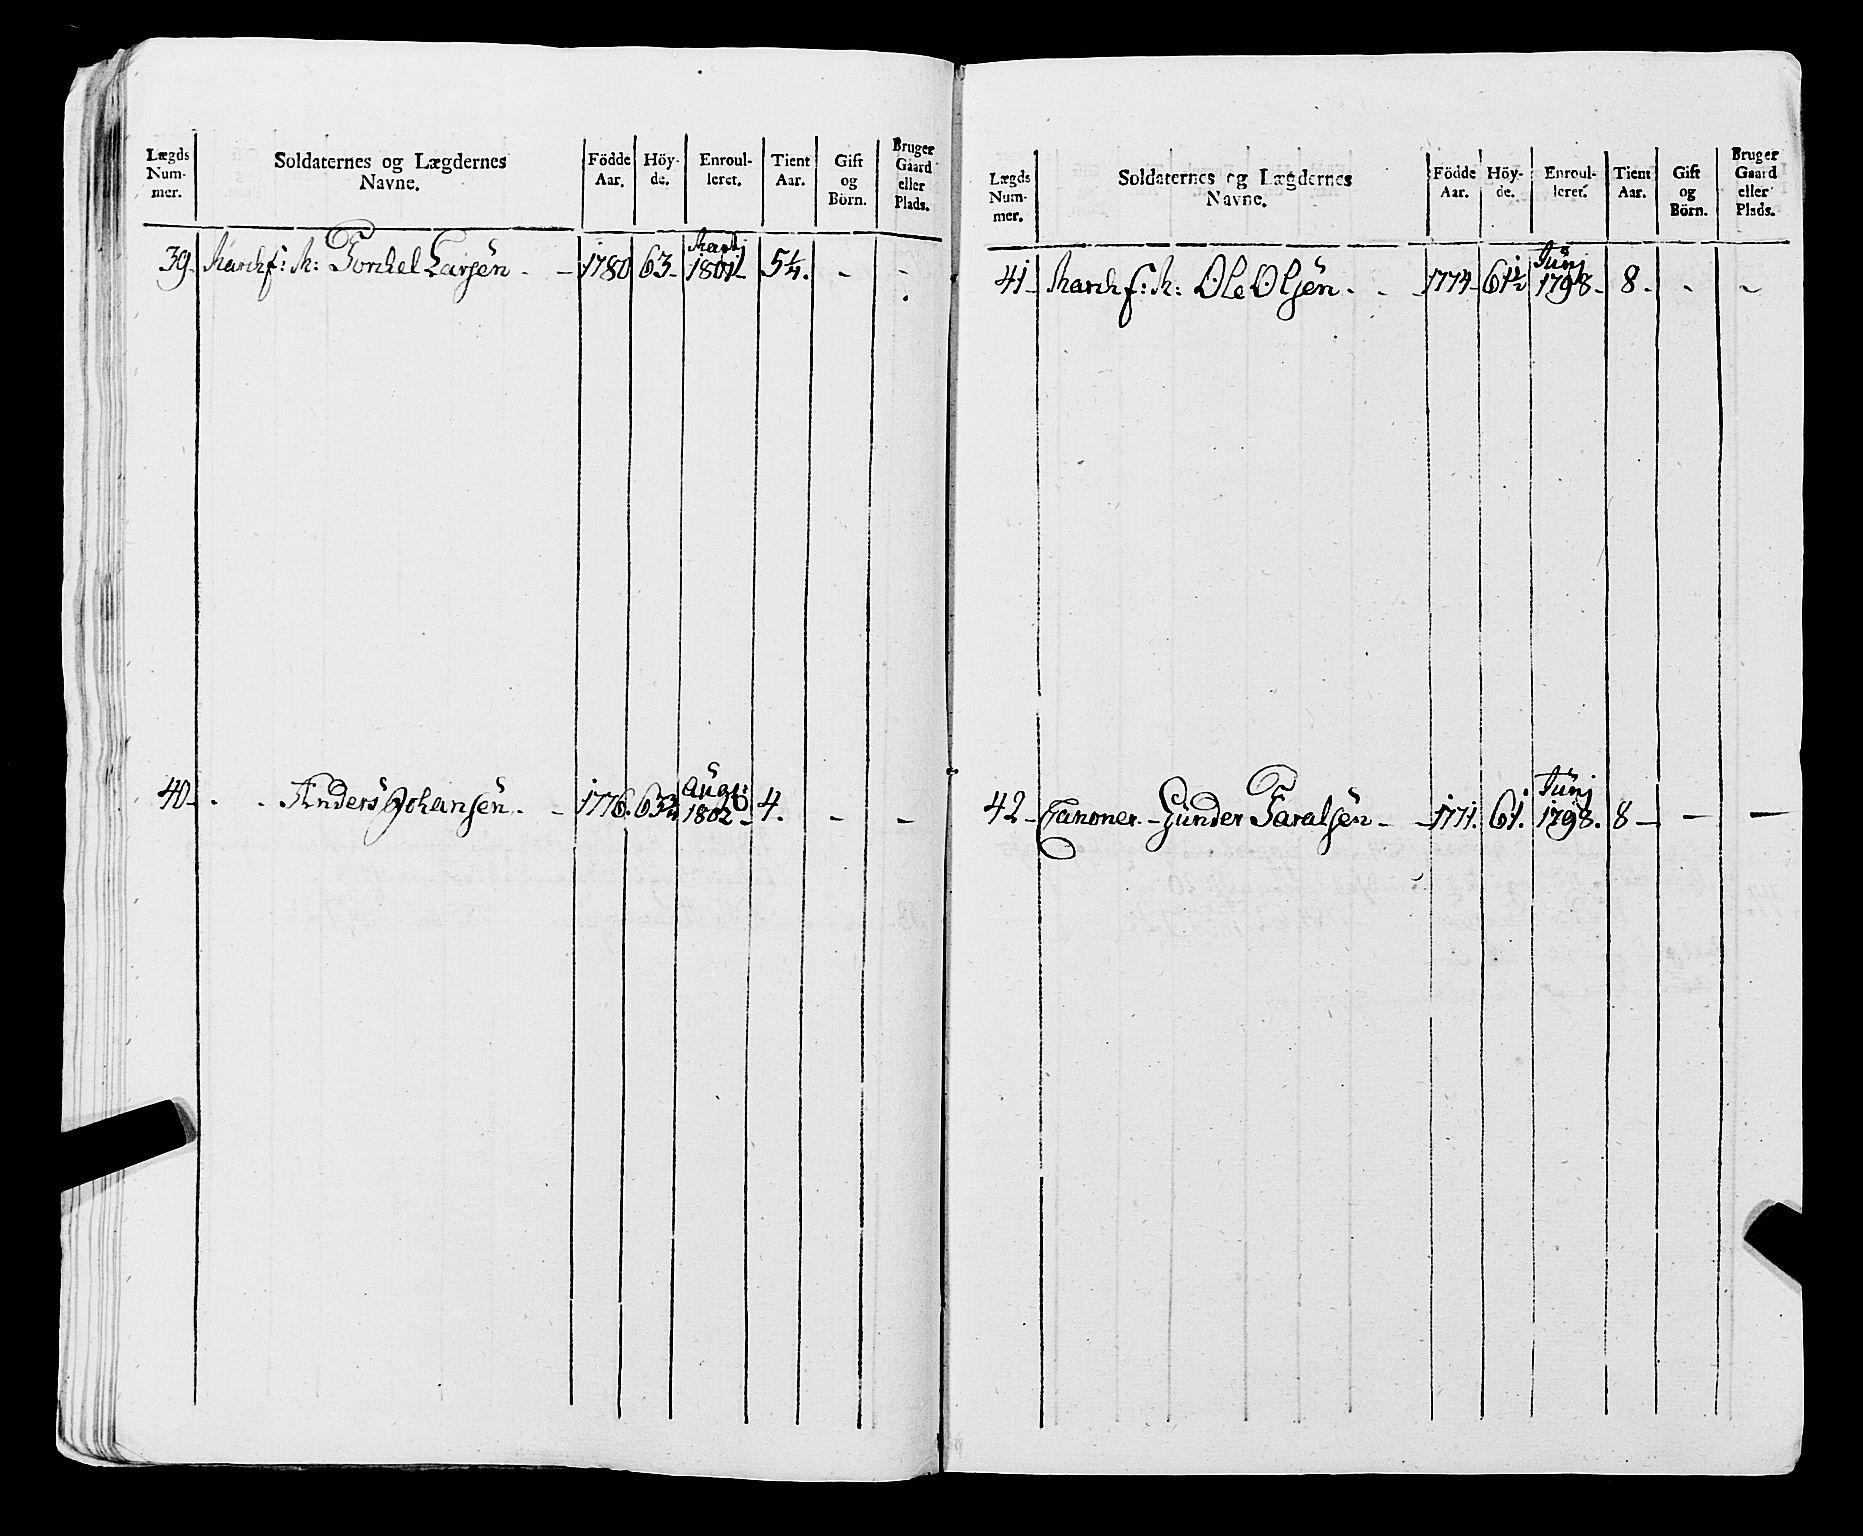 Lægds Num- mer. | Soldaternes og Lægdernes Navne. | Födde Aar. | Höy- de. | Enroul- leret. | Tient Aar. | Gift og Börn. | Bruger Gaard eller Plads.
39. Markf: K: Torkel Larsen - - 1780 63 - Martj 1801 - 5¼. - -
40 - - - Anders Johansen. - 1776. 63¾ Aug: 1802 - 4. - -
Lægds Num- mer. | Soldaternes og Lægdernes Navne. | Födde Aar. | Höy- de. | Enroul- leret. | Tient Aar. | Gift og Börn. | Bruger Gaard eller Plads.
41 - Markf: K: Ole Olsen. - - 1774 - 61½ Junj 1798 - 8 - - -
42 - Tanoner - Gunder Taralsen - - 1771. 61. Junj 1798. 8 - - -